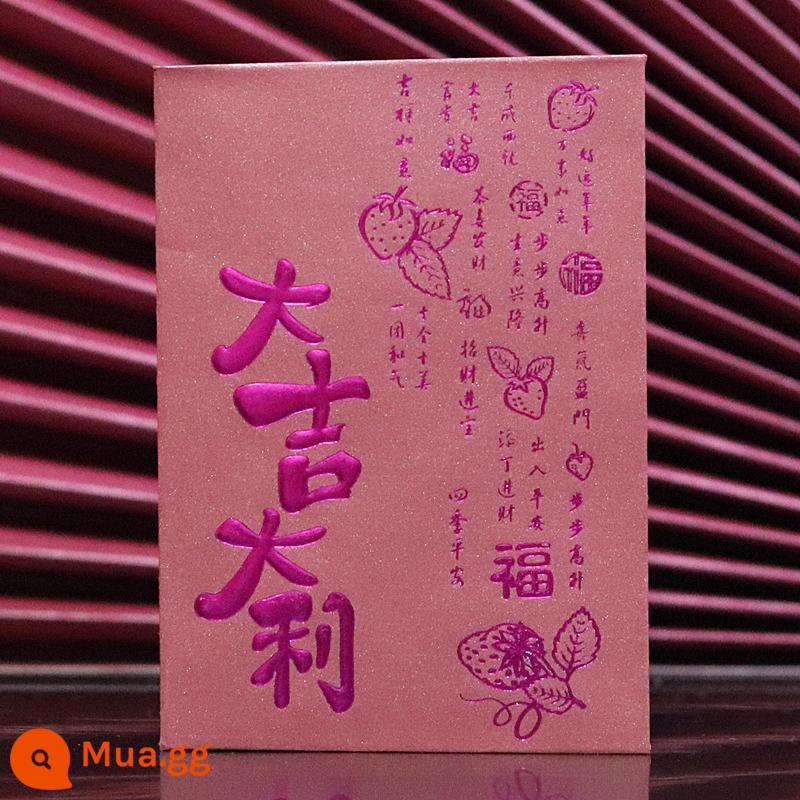 大吉大利
好运年年
福
喜气盈門
步步高升
万事如意
福
步步高升
出入平安
福
生意兴隆
添丁进财
大吉
福
恭喜发财
福
招财进宝
四季平安
吉祥如意
十全十美
一团和气
Mua.gg